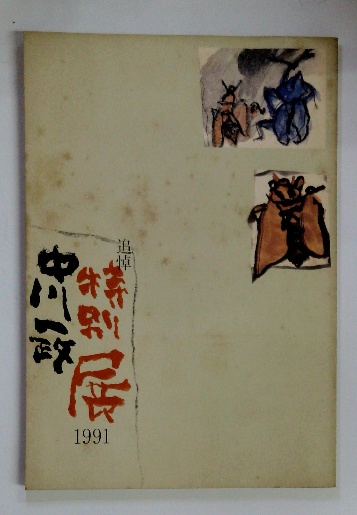 追悼
特別展
中川一政
1991